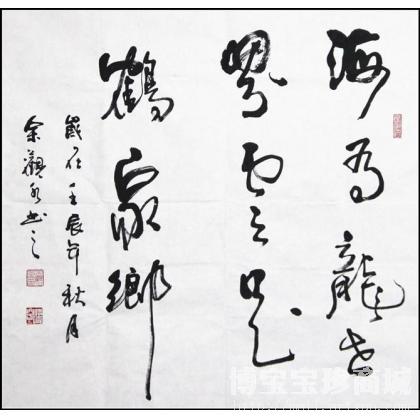 海為龍世
界雲是
鶴家鄉
歲在壬辰年秋月
余觀書之
博宝宝珍商城